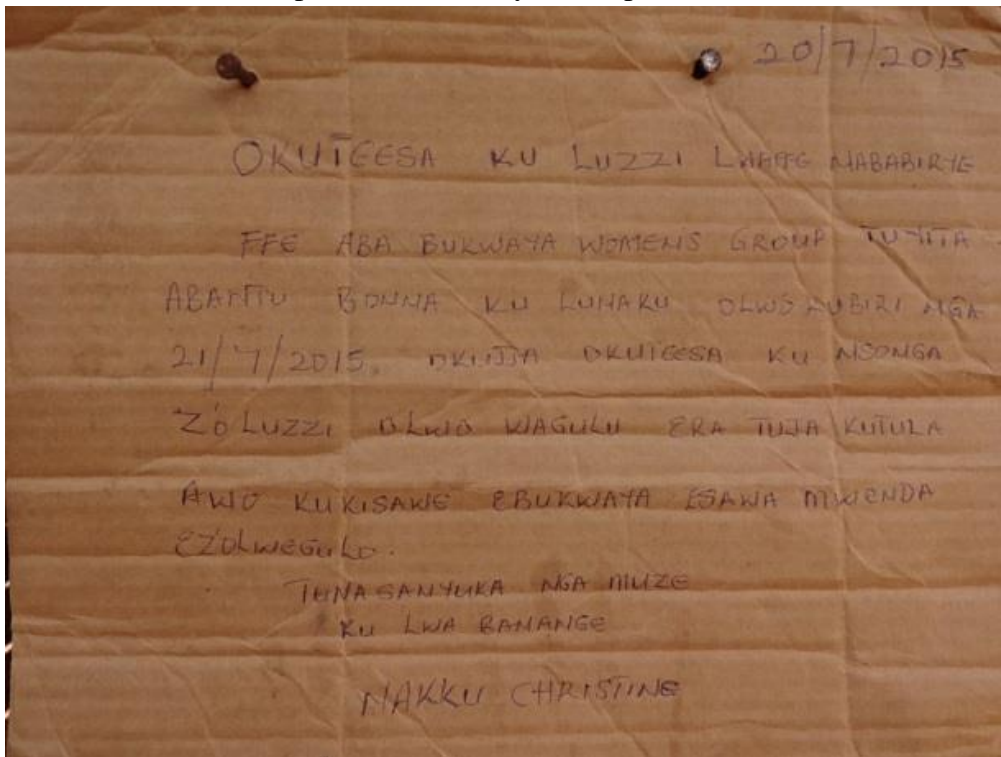 20/7/2015
OKUTEESA KU LUZZI LWAFFE NABABIRYE
FFE ABA BUKWAYA WOMENS GROUP TUYITA
ABANTU BONNA KU LUNAKU OLWO KUBIRI NGA
21/7/2015. OKUJJA OKUTEESA KU NSONGA
Z'O LUZZI OLWO WAGULU ERA TUJA KUTULA
AWO KUKISAWE EBUKWAYA ESAWA MWENDA
EZ'OLWEGULO.
TUNASANYUKA NGA MUZE
KU LWA BANANGE
NAKKU CHRISTINE